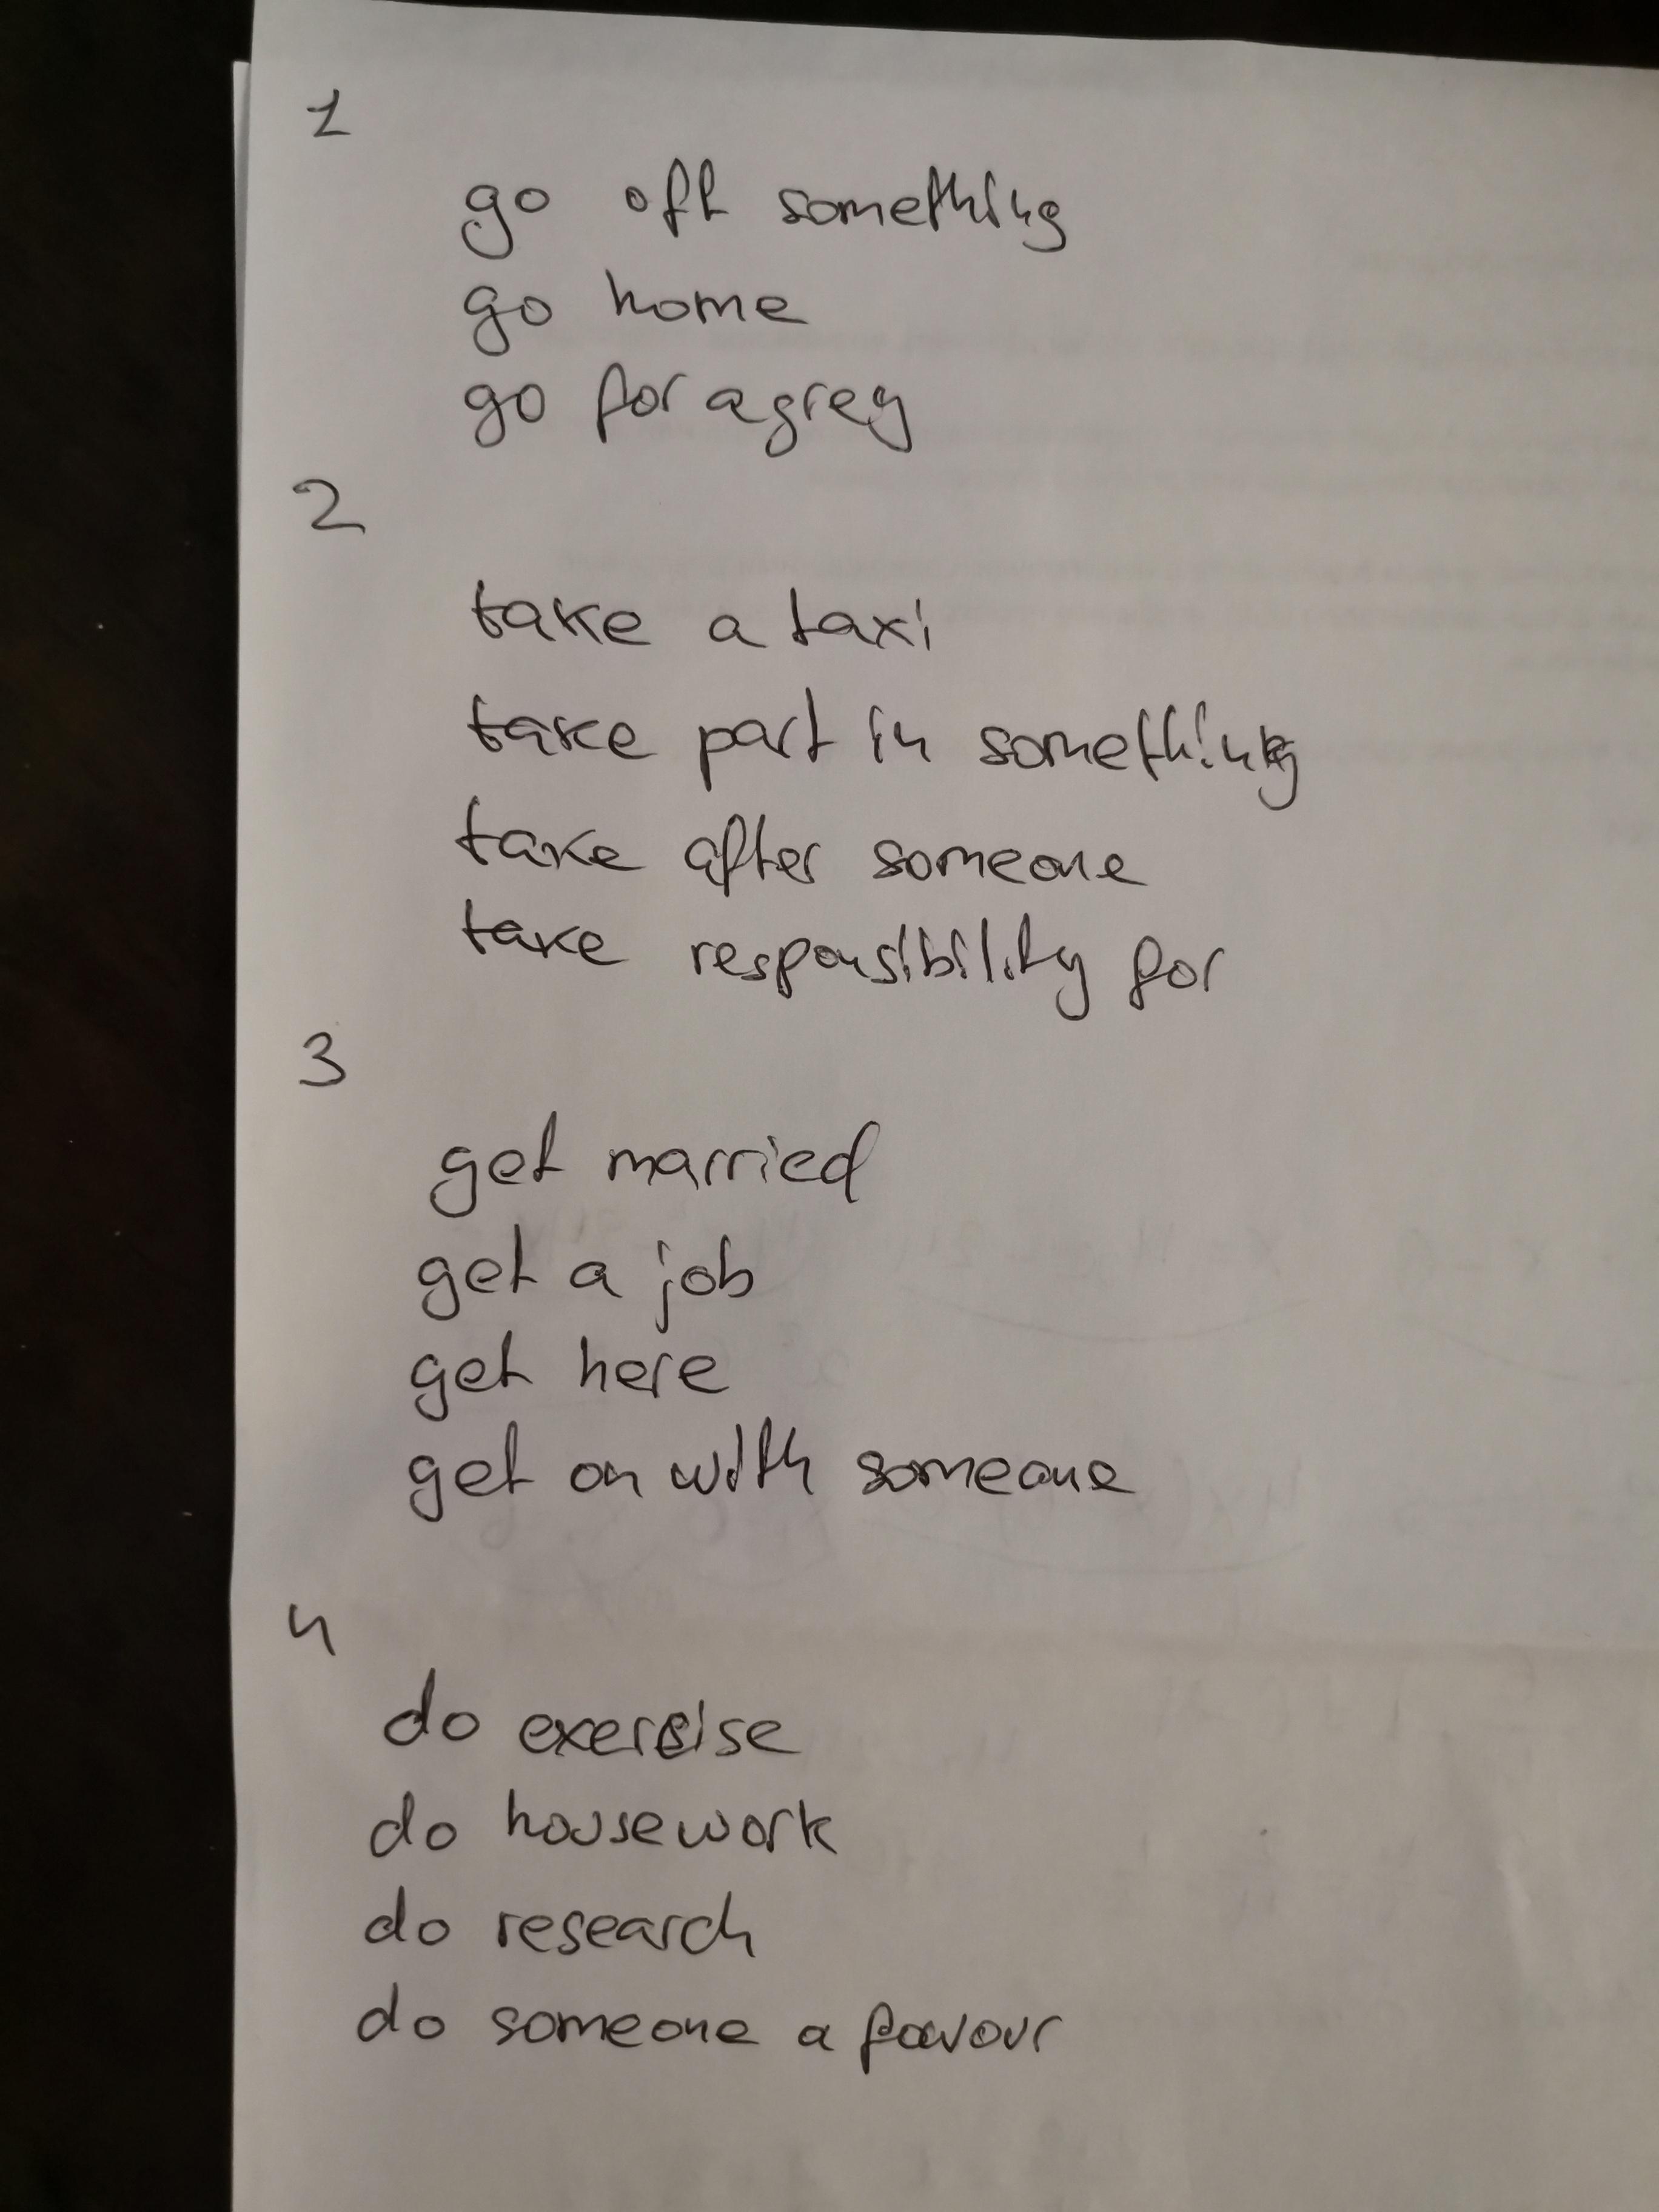 1
go off something
go home
go for agrey
2
take a taxi
take part in something
take after someone
take responsibility for
3
get married
get a job
get here
get on with someone
4
do exercise
do housework
do research
do someone a favour